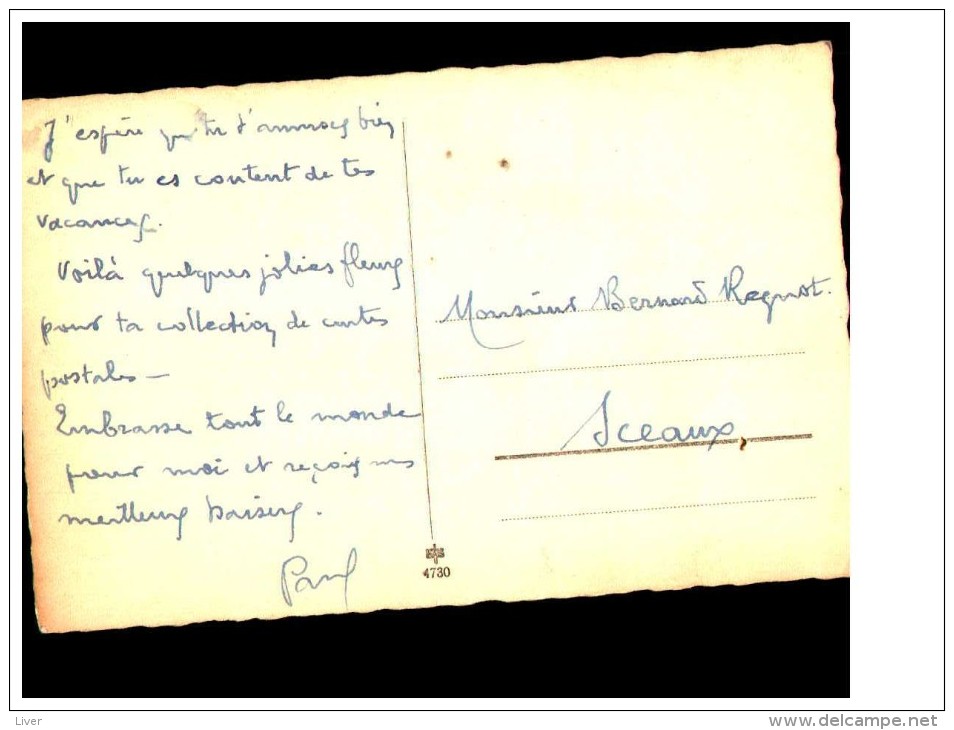 J'espère que tu t'amuses bien
et que tu es content de tes
vacances.
Voilà quelques jolies fleurs
pour ta collection de cartes
postales —
Embrasse tout le monde
pour moi et reçois mes
meilleurs baisers.
Paul
Monsieur Bernard Regnot.
Sceaux,
4730
Liver
www.delcampe.net